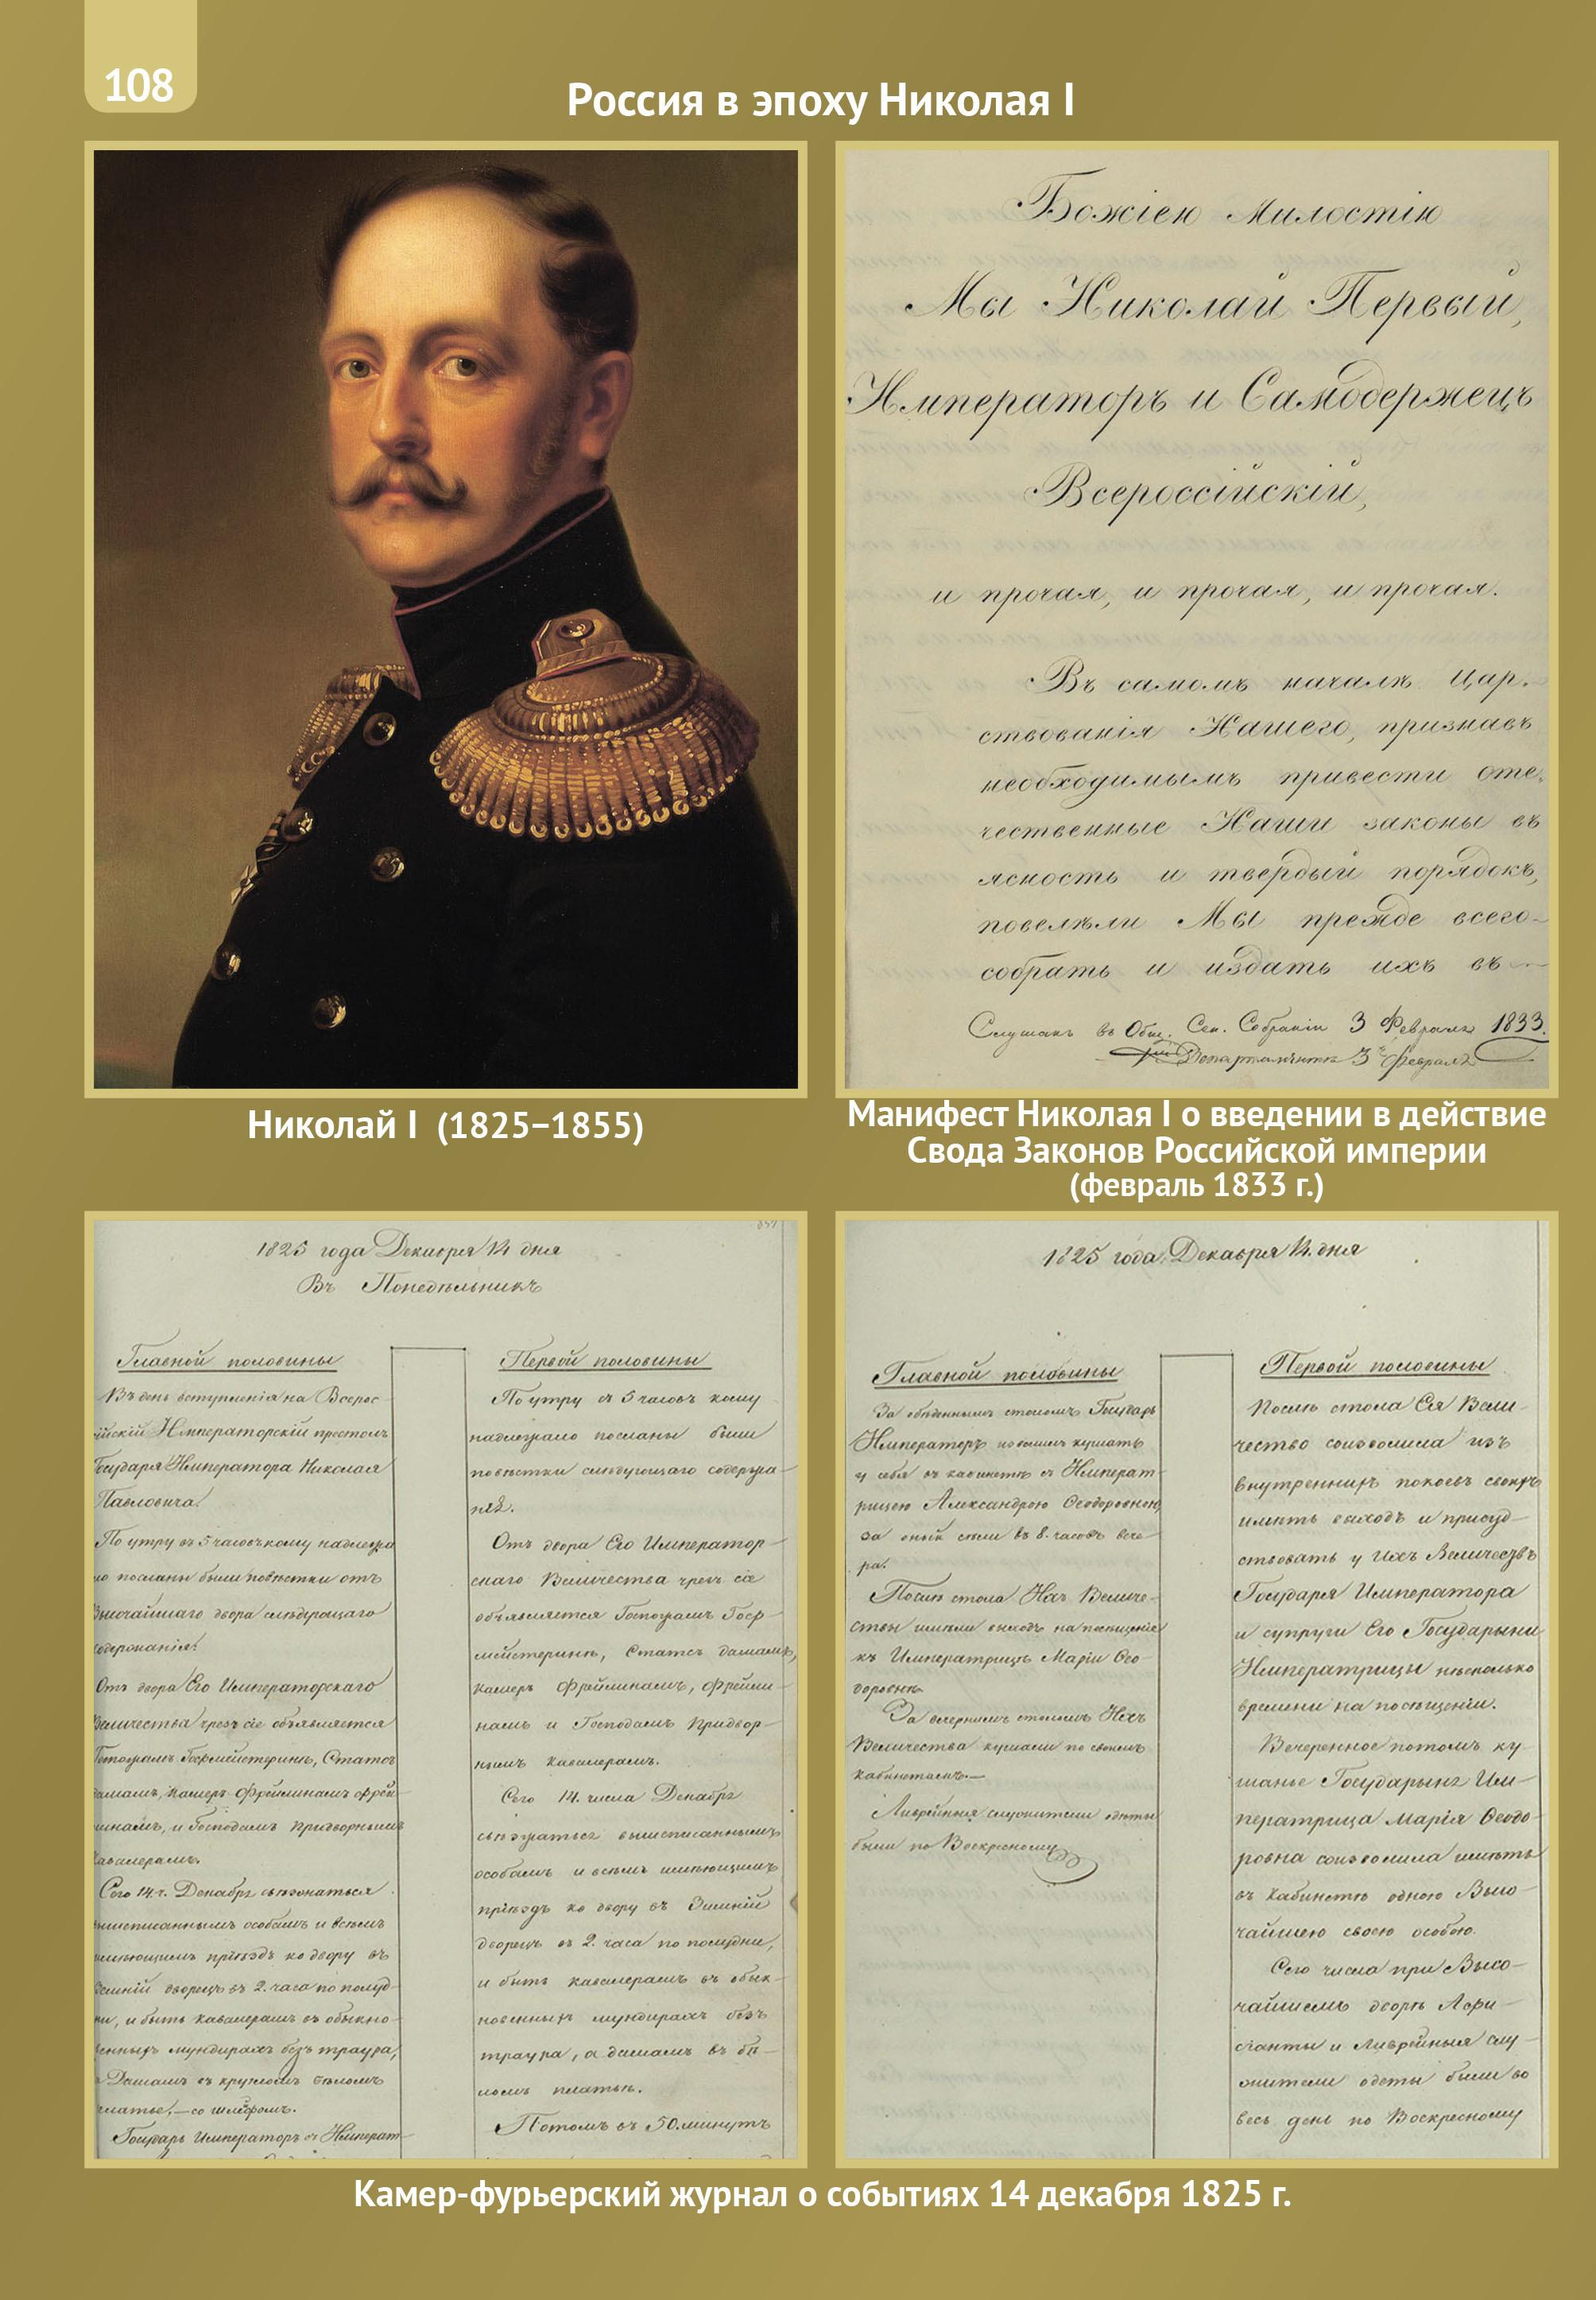 108
Россия в эпоху Николая I
Божіею Милостію
Мы Николай Первый,
Императоръ и Самодержецъ
Всероссійскій,
и прочая, и прочая, и прочая.
Въ самомъ началѣ Цар-
ствованія Нашего, признавъ
необходимымъ привести оте-
чественные Наши законы въ
ясность и твердый порядокъ,
повелѣли Мы прежде всего
собрать и издать ихъ въ
Слушанъ въ Общ. Сен. Собраніи 3 Февраля 1833.
3 Февраля
Николай I (1825–1855)
Манифест Николая I о введении в действие
Свода Законов Российской империи
(февраль 1833 г.)
1825 года Декабря 14 дня
Въ Понедѣльникъ
Главной половины
Въ день вступленія на Всерос-
ійскій Императорскій престолъ
Государя Императора Николая
Павловича.
По утру въ 5 часовъ кому надлежа
о посланы были повѣстки отъ
Высочайшаго двора слѣдующаго
содержанія:
Отъ двора Его Императорскаго
Величества чрезъ сіе объявляется
Господамъ Гофмейстеринѣ, Статсъ
дамамъ, Камеръ-Фрейлинамъ Фрей-
линамъ, и Господамъ Придворнымъ
Кавалерамъ.
Сего 14 г. Декабря съѣзжаться
вышеписаннымъ особамъ и всѣмъ
имѣющимъ пріѣздъ ко двору въ
Зимній дворецъ въ 2. часа по полуд-
ни, и быть Кавалерамъ въ обыкно-
венныхъ мундирахъ безъ траура,
Дамамъ въ кругломъ бѣломъ
платье, — со шлефомъ.
Государь Императоръ съ Императ-
Первой половины
По утру въ 5 часовъ кому
надлежало посланы были
повѣстки слѣдующаго содержа-
нія.
Отъ двора Его Император-
скаго Величества чрезъ сіе
объявляется Господамъ Гоф-
мейстеринѣ, Статсъ дамамъ,
Камеръ Фрейлинамъ, Фрейли-
намъ и Господамъ Придвор-
нымъ Кавалерамъ.
Сего 14. числа Декабря
съѣзжаться вышеписаннымъ
особамъ и всѣмъ имѣющимъ
пріѣздъ ко двору въ Зимній
дворецъ въ 2. часа по полудни,
и быть кавалерамъ въ обык-
новенныхъ мундирахъ безъ
траура, а дамамъ въ бѣ-
ломъ платьѣ.
Потомъ въ 50. минутъ
1825 года, Декабря 14. дня
Главной половины
За обѣденнымъ столомъ Государь
Императоръ изволилъ кушать
у себя въ кабинетѣ съ Императ-
рицею Александрою Ѳеодоровною,
за оный сѣли въ 8. часовъ вече-
ра.
Послѣ стола Ихъ Величе-
ствы имѣли выходъ на посѣщеніе
къ Императрицѣ Маріи Ѳео-
доровнѣ.
За вечернимъ столомъ Ихъ
Величества кушали по своимъ
кабинетамъ.—
Ливрейныя служители одѣты
были по Воскресному
Первой половины
Послѣ стола Ея Вели-
чество соизволила изъ
внутреннихъ покоевъ своихъ
имѣть выходъ и присуд-
ствовать у Ихъ Величествъ
Государя Императора
и супруги Его Государыни
Императрицы нѣсколько
времени на посѣщеніи.
Вечеренное потомъ ку-
шанье Государыня Им-
ператрица Марія Ѳеодо-
ровна соизволила имѣть
въ Кабинетѣ одною Высо-
чайшею своею особою.
Сего числа при Высо-
чайшемъ дворѣ Афи-
сіанты и Ливрейныя слу-
жители одеты были во
весь день по Воскресному
Камер-фурьерский журнал о событиях 14 декабря 1825 г.